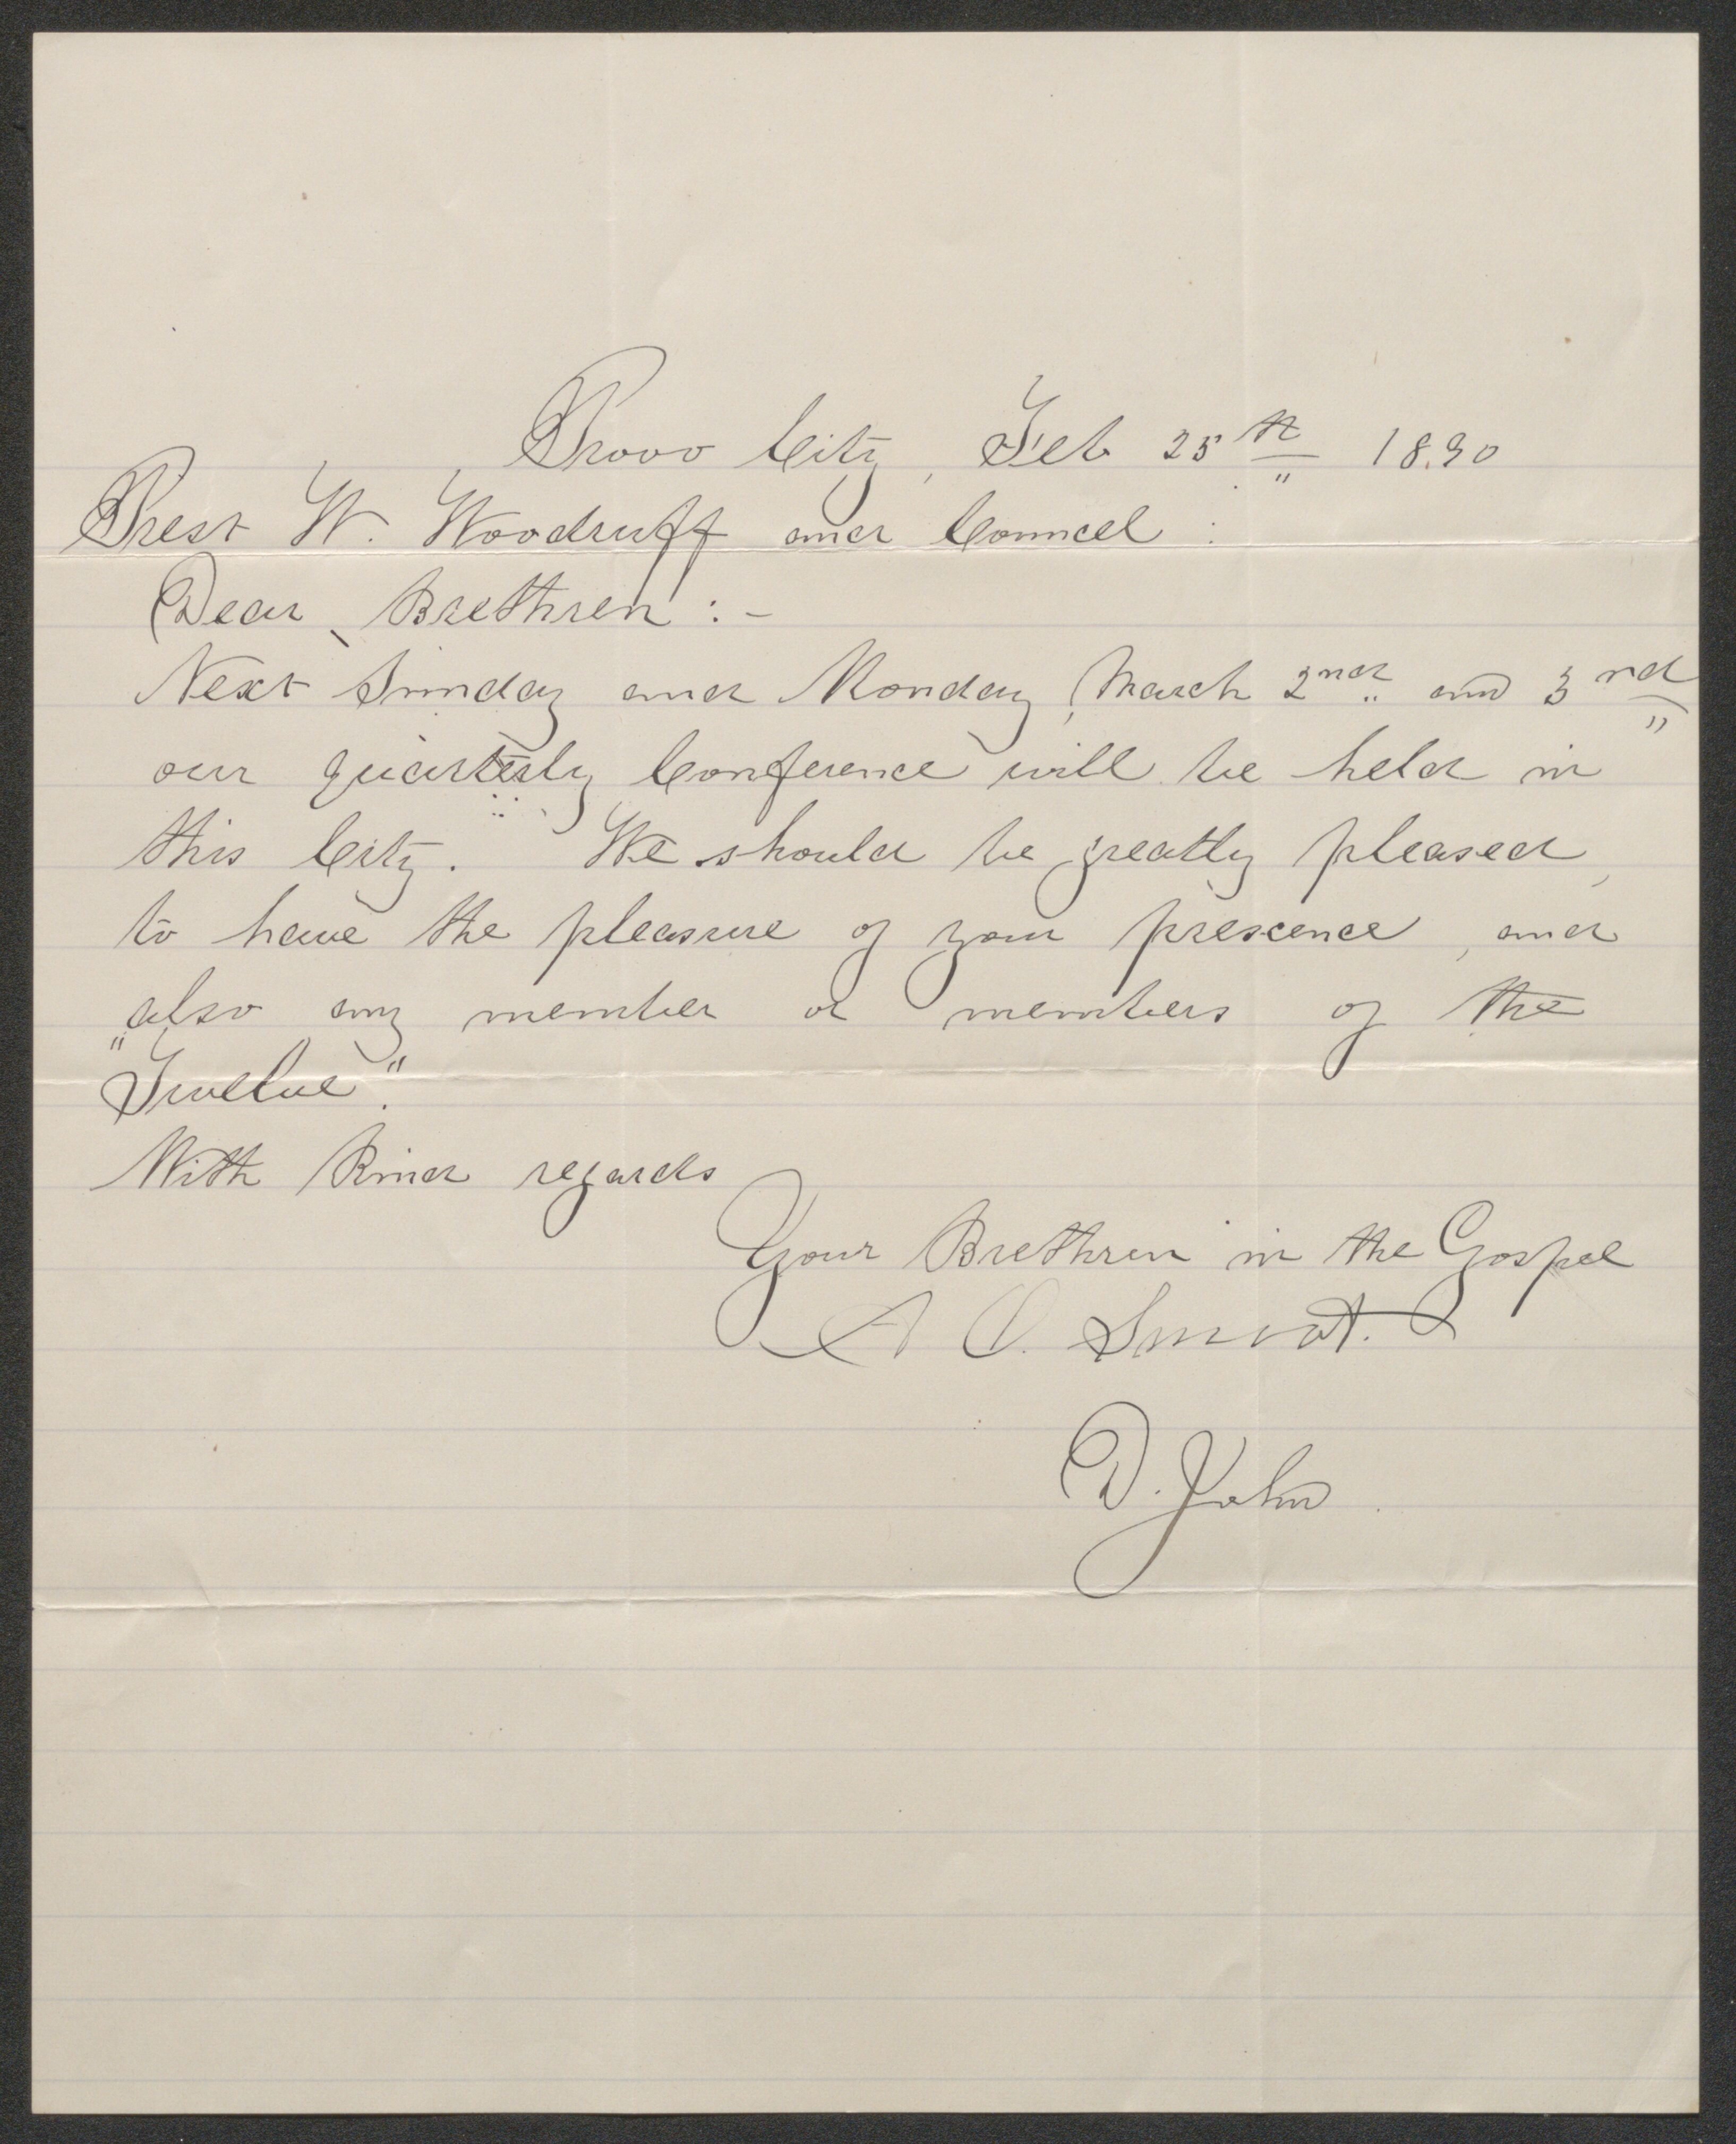 Provo City, Feb 25th 1890
Prest W. Woodruff and Councel :
Dear Brethren : -
Next Sunday and Monday, March 2nd and 3rd
our quarterly Conference will be held in
this City. We should be greatly pleased,
to have the pleasure of your prescence, and
also any member or members of the
"Twelve".
With Kind regards
Your Brethren in the Gospel
A O. Smoot.
D. John.